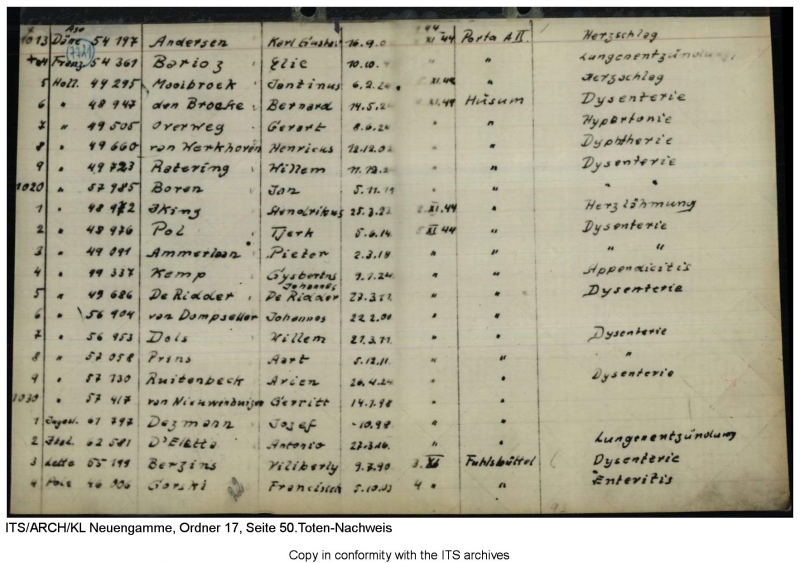 Aso 44
1013 Däne 54 197 Andersen Karl 16.9.0 XI 44 Porta A II. Herzschlag
14 Franz 54 361 Barioz Elie 10.10. " " Lungenentzündung
5 Holl. 49 295 Mooibroek Jantinus 6.2.2 XI.44 " Herzschlag
6 " 48 947 den Broeke Bernard 14.5.2 XI.44 Husum Dysenterie
7 " 49 505 Overweg Gerart 8.6.2 " " Hypertonie
8 " 49 660 van Werkhoven Henricus 12.12.02 " " Dyphtherie
9 " 49 723 Ratering Willem 11.12.2 " " Dysenterie
1020 " 57 985 Boren Jan 5.11.19 " " " "
1 " 48 972 IKing Hendrikus 25.3.22 XI.44 " Herzlähmung
2 " 48 976 Pol Tjerk 5.6.14 5 XI 44 " Dysenterie
3 " 49 091 Ammerlaan Pieter 2.3.19 " " " "
4 " 49 337 Kemp Gysbertus 9.7.24 " " Appendicitis
Johannes
5 " 49 686 De Ridder De Ridder 27.3.22 " " Dysenterie
6 " 56 904 van Dompseller Johannes 22.2.00 " "
7 " 56 953 Dols Willem 27.3.11 " " Dysenterie
8 " 57 058 Prins Aart 5.12.11 " " "
9 " 57 130 Ruitenbeck Arien 26.4.24 " " Dysenterie
1030 " 57 417 van Nieuwenhuizen Gerritt 14.1.98 " "
1 Jugosl. 61 797 Dezmann Josef -.10.98 "
2 Ital. 62 581 D'Eletto Antonio 27.3.16. " " Lungenentzündung
3 Lette 55 199 Berzins Viliberly 9.7.90 3. XI Fuhlsbüttel Dysenterie
4 Pole 46 906 Gorski Francisiek 5.10.03 4 " " Enteritis
ITS/ARCH/KL Neuengamme, Ordner 17, Seite 50.Toten-Nachweis
Copy in conformity with the ITS archives